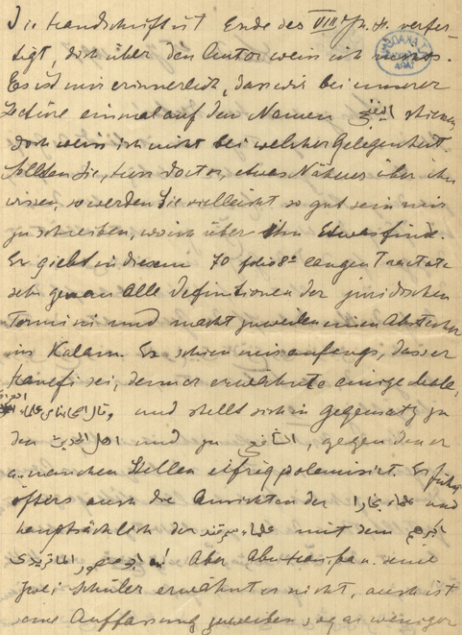 Die Handschrift ist Ende des VIII Jh. H. verfer-
tigt, doch über den Autor weiss ich nichts.
Es ist mir erinnerlich, dass wir bei unserer
Lectüre einmal auf den Namen stiessen
doch weiss ich nicht bei welcher Gelegenheit.
Sollten Sie, Herr Doctor, etwas Näheres über ihn
wissen, so werden Sie vielleicht so gut sein mir
zu schreiben, wo ich über ihn Etwas finde.
Er giebt in diesem 70 folio 8° langen Tractate
sehr genau alle Definitionen der juridischen
Termini und macht zuweilen einen Abstecher
ins Kalam. Es schien mir anfangs, dass er
Hanefi sei, denn er erwähnte einige Male,
und stellt sich in Gegensatz zu
den اهل الحديث und zu الشافعي, gegen den er
a. manchen Stellen eifrig polemisirt. Er führt
öfters auch die Ansichten der علماء بخارا und
hauptsächlich der علماء سمرقند mit dem
ابو منصور الماتريدى Aber Abu Hanifa u. seine
zwei Schüler erwähnt er nicht, auch ist
seine Auffassung zuweilen, sogar weniger